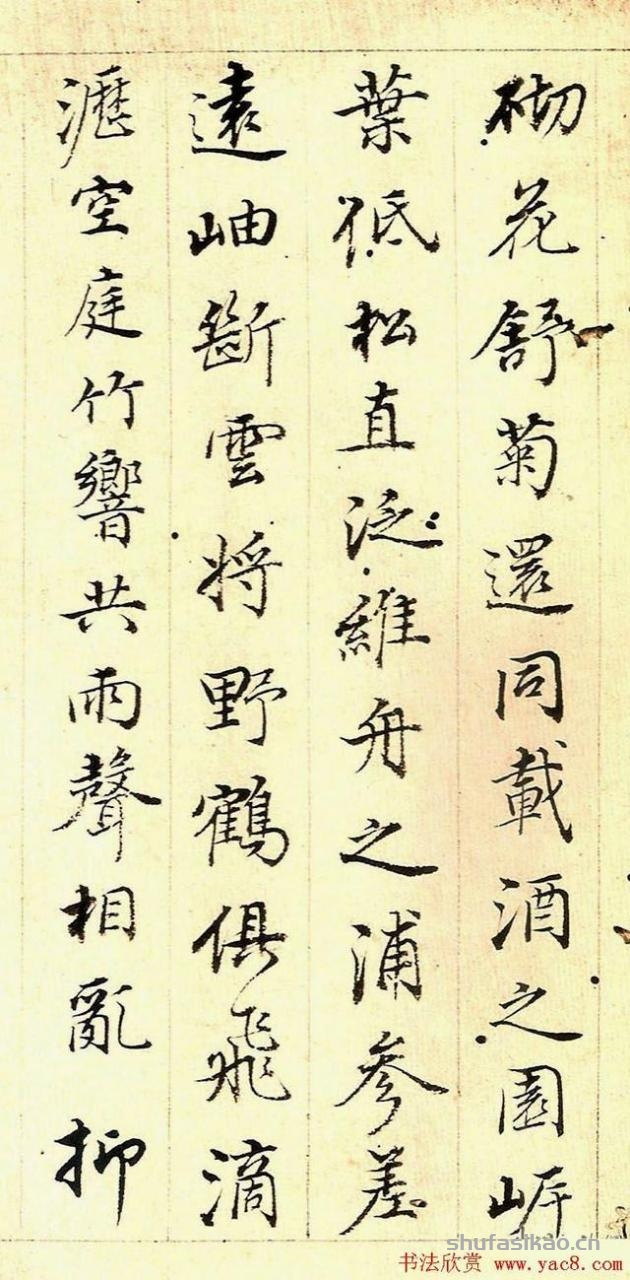 砌花舒菊還同載酒之園岍
葉低松直泛維舟之浦參差
遠岫斷雲將野鶴俱飛滴
瀝空庭竹響共雨聲相亂抑
shufasikao.cn
书法欣赏 www.yac8.com